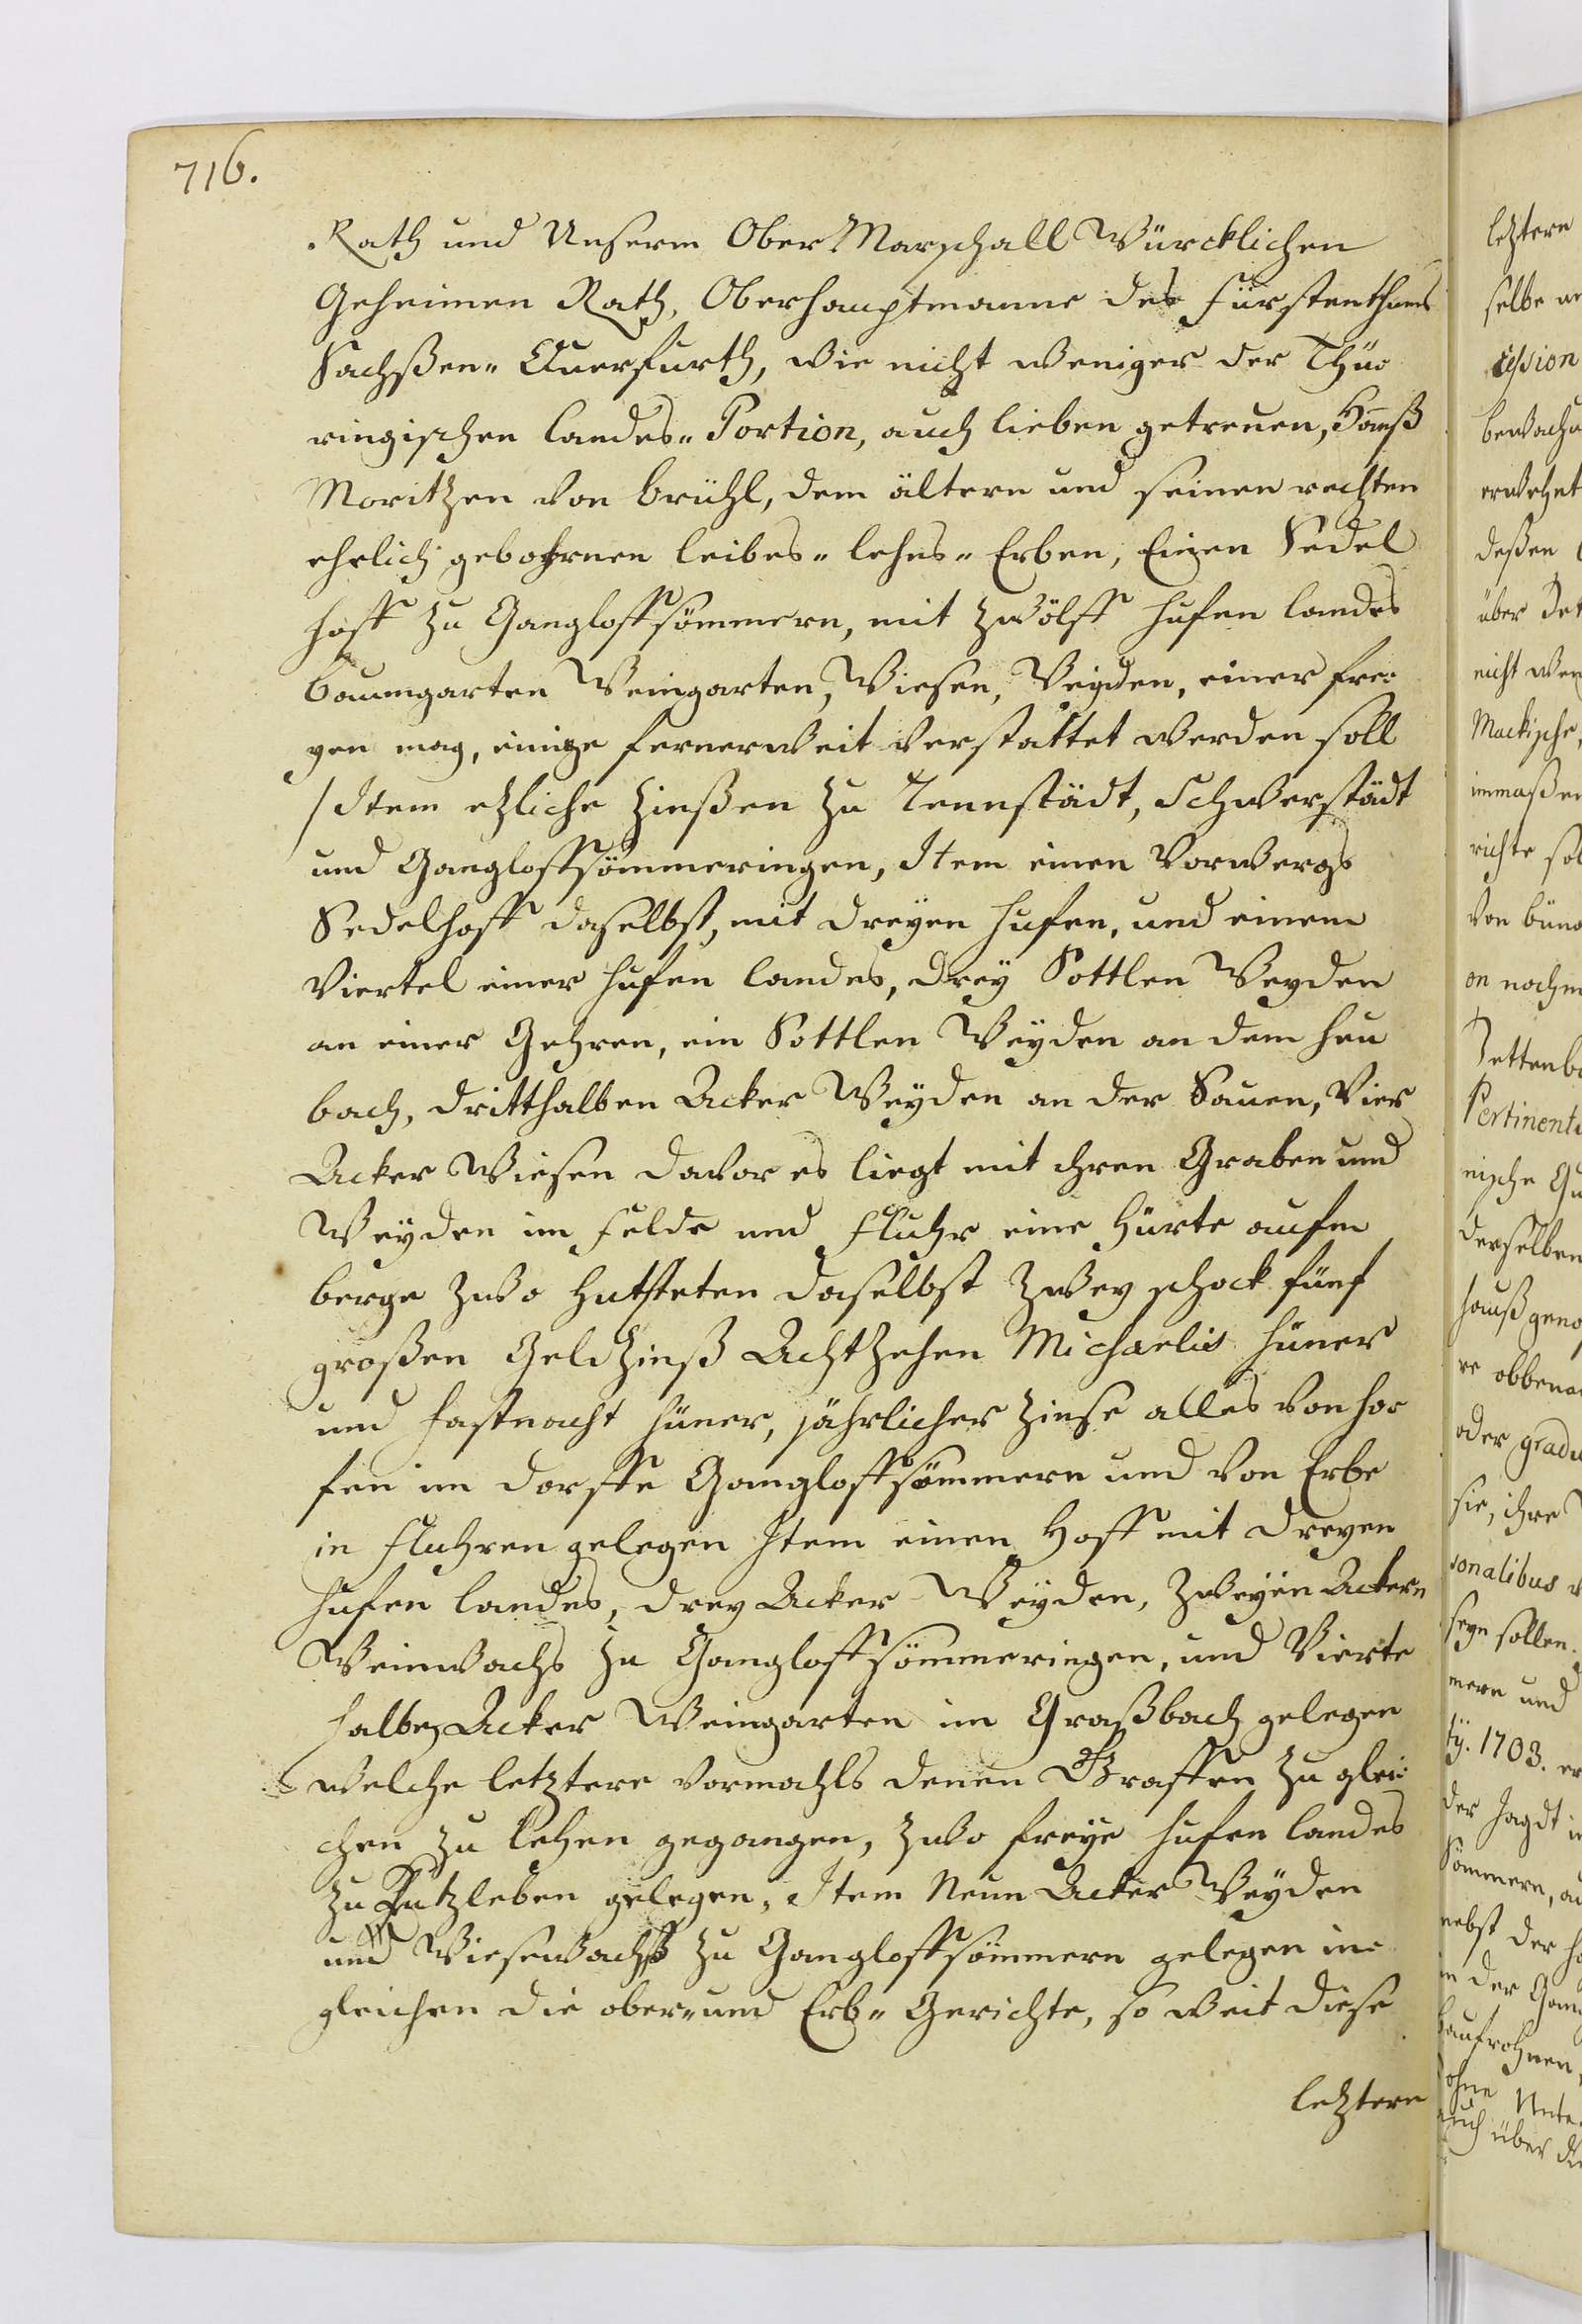 716.
Rath und Unserm Ober Marschall Würcklichen
Geheimen Rath, Oberhauptmanne des Fürstenthums
Sachßen„ Querfurth, wie nicht weniger der Thü:
ringischen Landes„ Portion, auch lieben getreuen, Hannß
Moritzen von Brühl, dem ältern und seinen rechten
ehrlich gebohrnen Leibes„ Lehns„ Erben, Einen Sedel
hoff zu Gangloffsömmern, mit zwölff Hufen Landes
Baumgarten Weingarten, Wiesen, Weyden, einer fre:
gen mag, einige fernerweit verstattet werden soll
/ Item etzliche Zinßen zu Tennstädt, Schwerstädt
und Gangloffsömmeringen, Item einen Vorwergs
Sedelhoff daselbst, mit dreyen Hufen, und einem
Viertel einer Hufen Landes, drey Sottlen Weyden
an einer Gehren, ein Sottlen Weyden an dem Heu
bach, dritthalben Acker Weyden an der Sauen, Vier
Acker Wiesen davor es liegt mit ihren Graben und
Weyden im Felde und Fluhr eine Hürte aufm
Berge zwo Hutsteten daselbst zwey schock fünf
großen Geldzinß Achtzehen Michaelis Hüner
und Fastnacht Hüner, jährlicher Zinse alles von Hoe
fen im Dorffe Gangloffsömmern und von Erbe
in Fluhren gelegen Item einen Hoff mit dreyen
Hufen Landes, drey Acker Weyden, zweyen Ackern
Weinwachs zu Gangloffsömmeringen, und Vierte
halben Acker Weingarten im Graßbach gelegen
welche letztere vormahls denen Graffen zu Glei:
chen zu Lehen gegangen, zwo freye Hufen Landes
zu Lützleben gelegen, Item Neun Acker Weyden
und Wiesewachß zu Gangloffsömmern gelegen in:
gleichen die ober„ und Erb„ Gerichte, so weit diese
letztern
letztern
selbe
cession
erwehnt
deßen
über
nicht
Mackische,
immaßen
richte
von
on
Pertinenti
nische
derselben
oder gradu
sie, ihre
sonalibus
seyn sollen.
mern und
ty. 1703.
der Jagdt
Sömmern,
nebst der
in der
Baufrohnen,
ohne
auch über